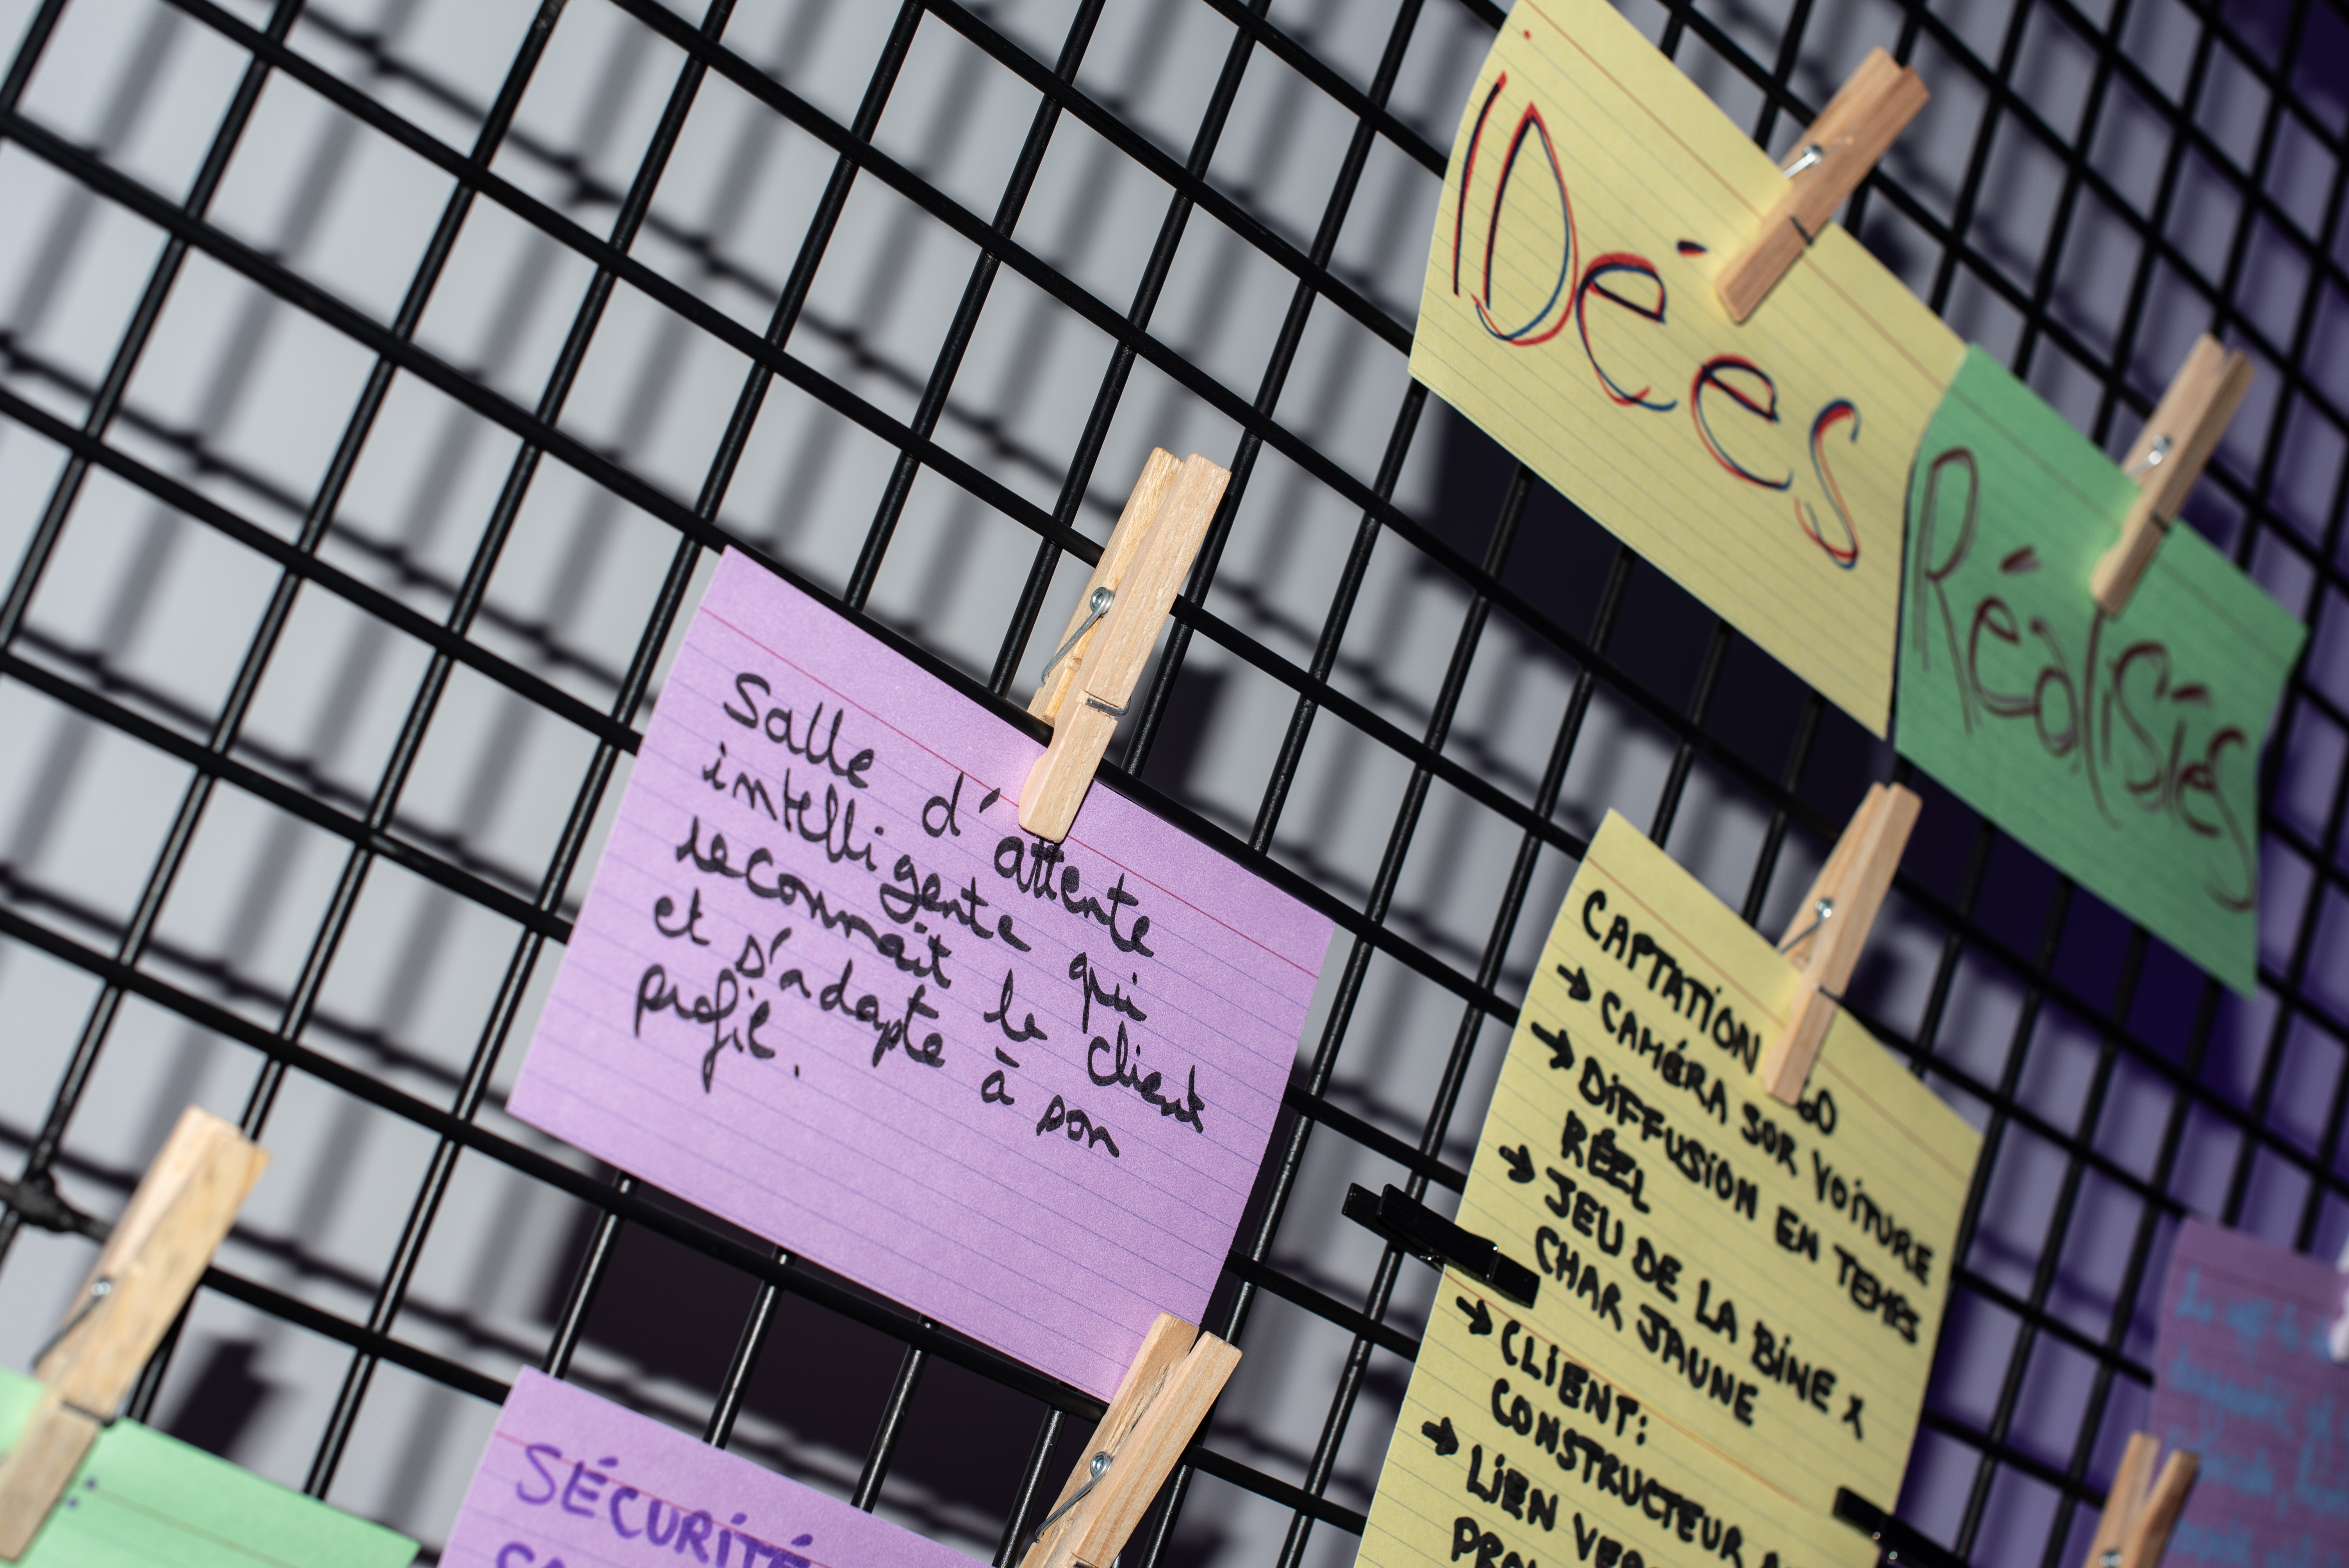 IDées
Réalisées
Salle d'attente
intelligente qui
reconnaît le client
et s'adapte à son
profil.
CAPTATION
→ CAMÉRA SUR VOITURE
→ DIFFUSION EN TEMPS
RÉEL
→ JEU DE LA BINE X
CHAR JAUNE
→ CLIENT:
CONSTRUCTEUR
→ LIEN
SÉCURITÉ